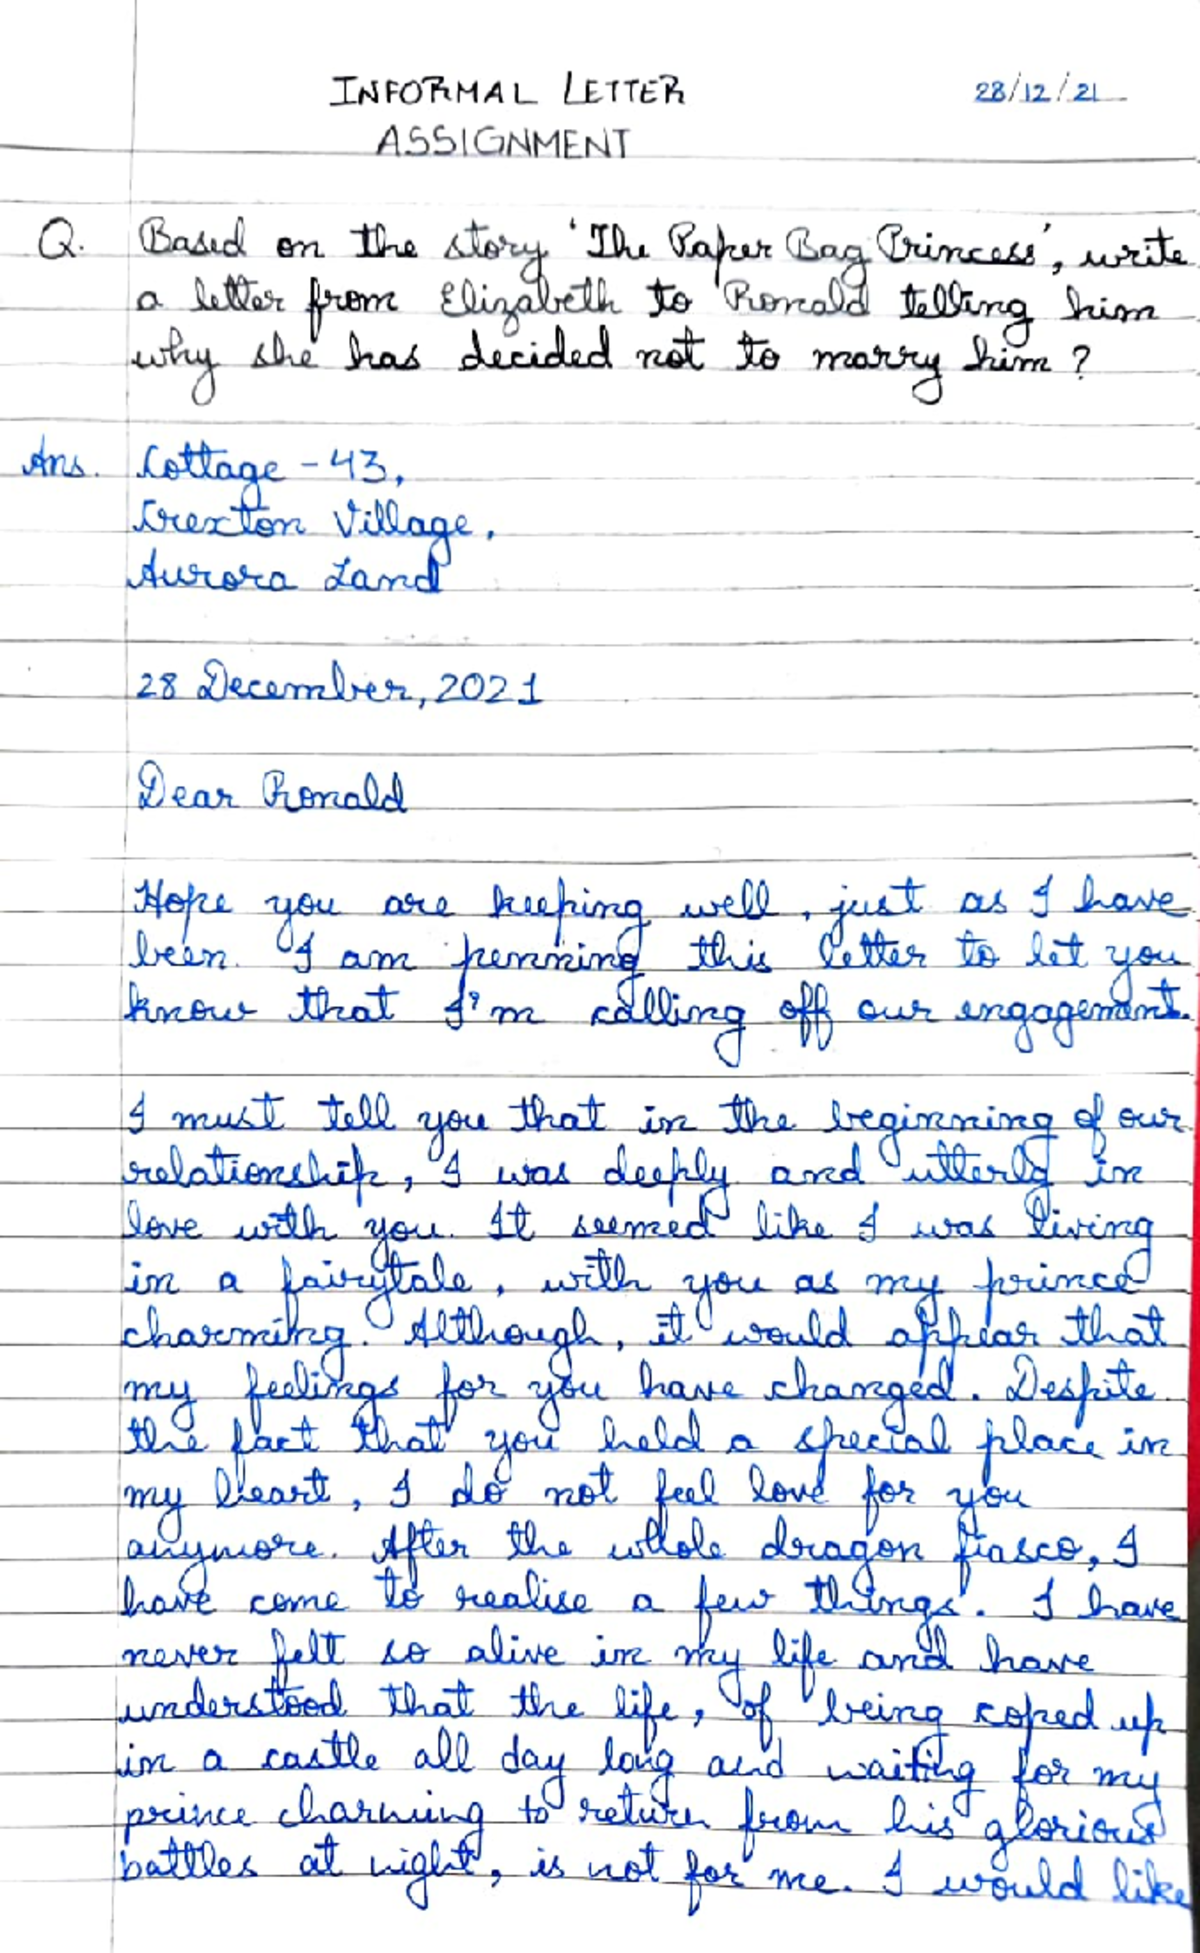 INFORMAL LETTER 28/12/21
ASSIGNMENT
Q. Based on the story 'The Paper Bag Princess', write
a letter from Elizabeth to Ronald telling him
why she has decided not to marry him?
Ans. Cottage - 43,
Crexton Village,
Aurora Land
28 December, 2021
Dear Ronald
Hope you are keeping well, just as I have
been. I am penning this letter to let you
know that I'm calling off our engagement.
I must tell you that in the beginning of our
relationship, I was deeply and utterly in
love with you. It seemed like I was living
in a fairytale, with you as my prince
charming. Although, it would appear that
my feelings for you have changed. Despite
the fact that you held a special place in
my heart, I do not feel love for you
anymore. After the whole dragon fiasco, I
have come to realise a few things. I have
never felt so alive in my life and have
understood that the life, of being coped up
in a castle all day long and waiting for my
prince charming to return from his glorious
battles at night, is not for me. I would like